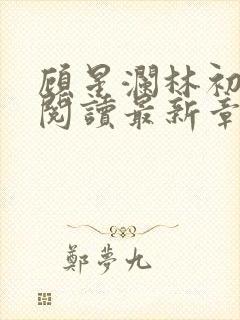 顾星澜林初
閱讀最新章
鄭夢九